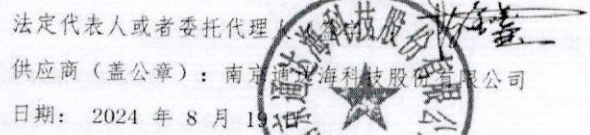 法定代表人或者委托代理人
供应商（盖公章）：南京通达海科技股份有限公司
日期： 2024 年 8 月 19 日